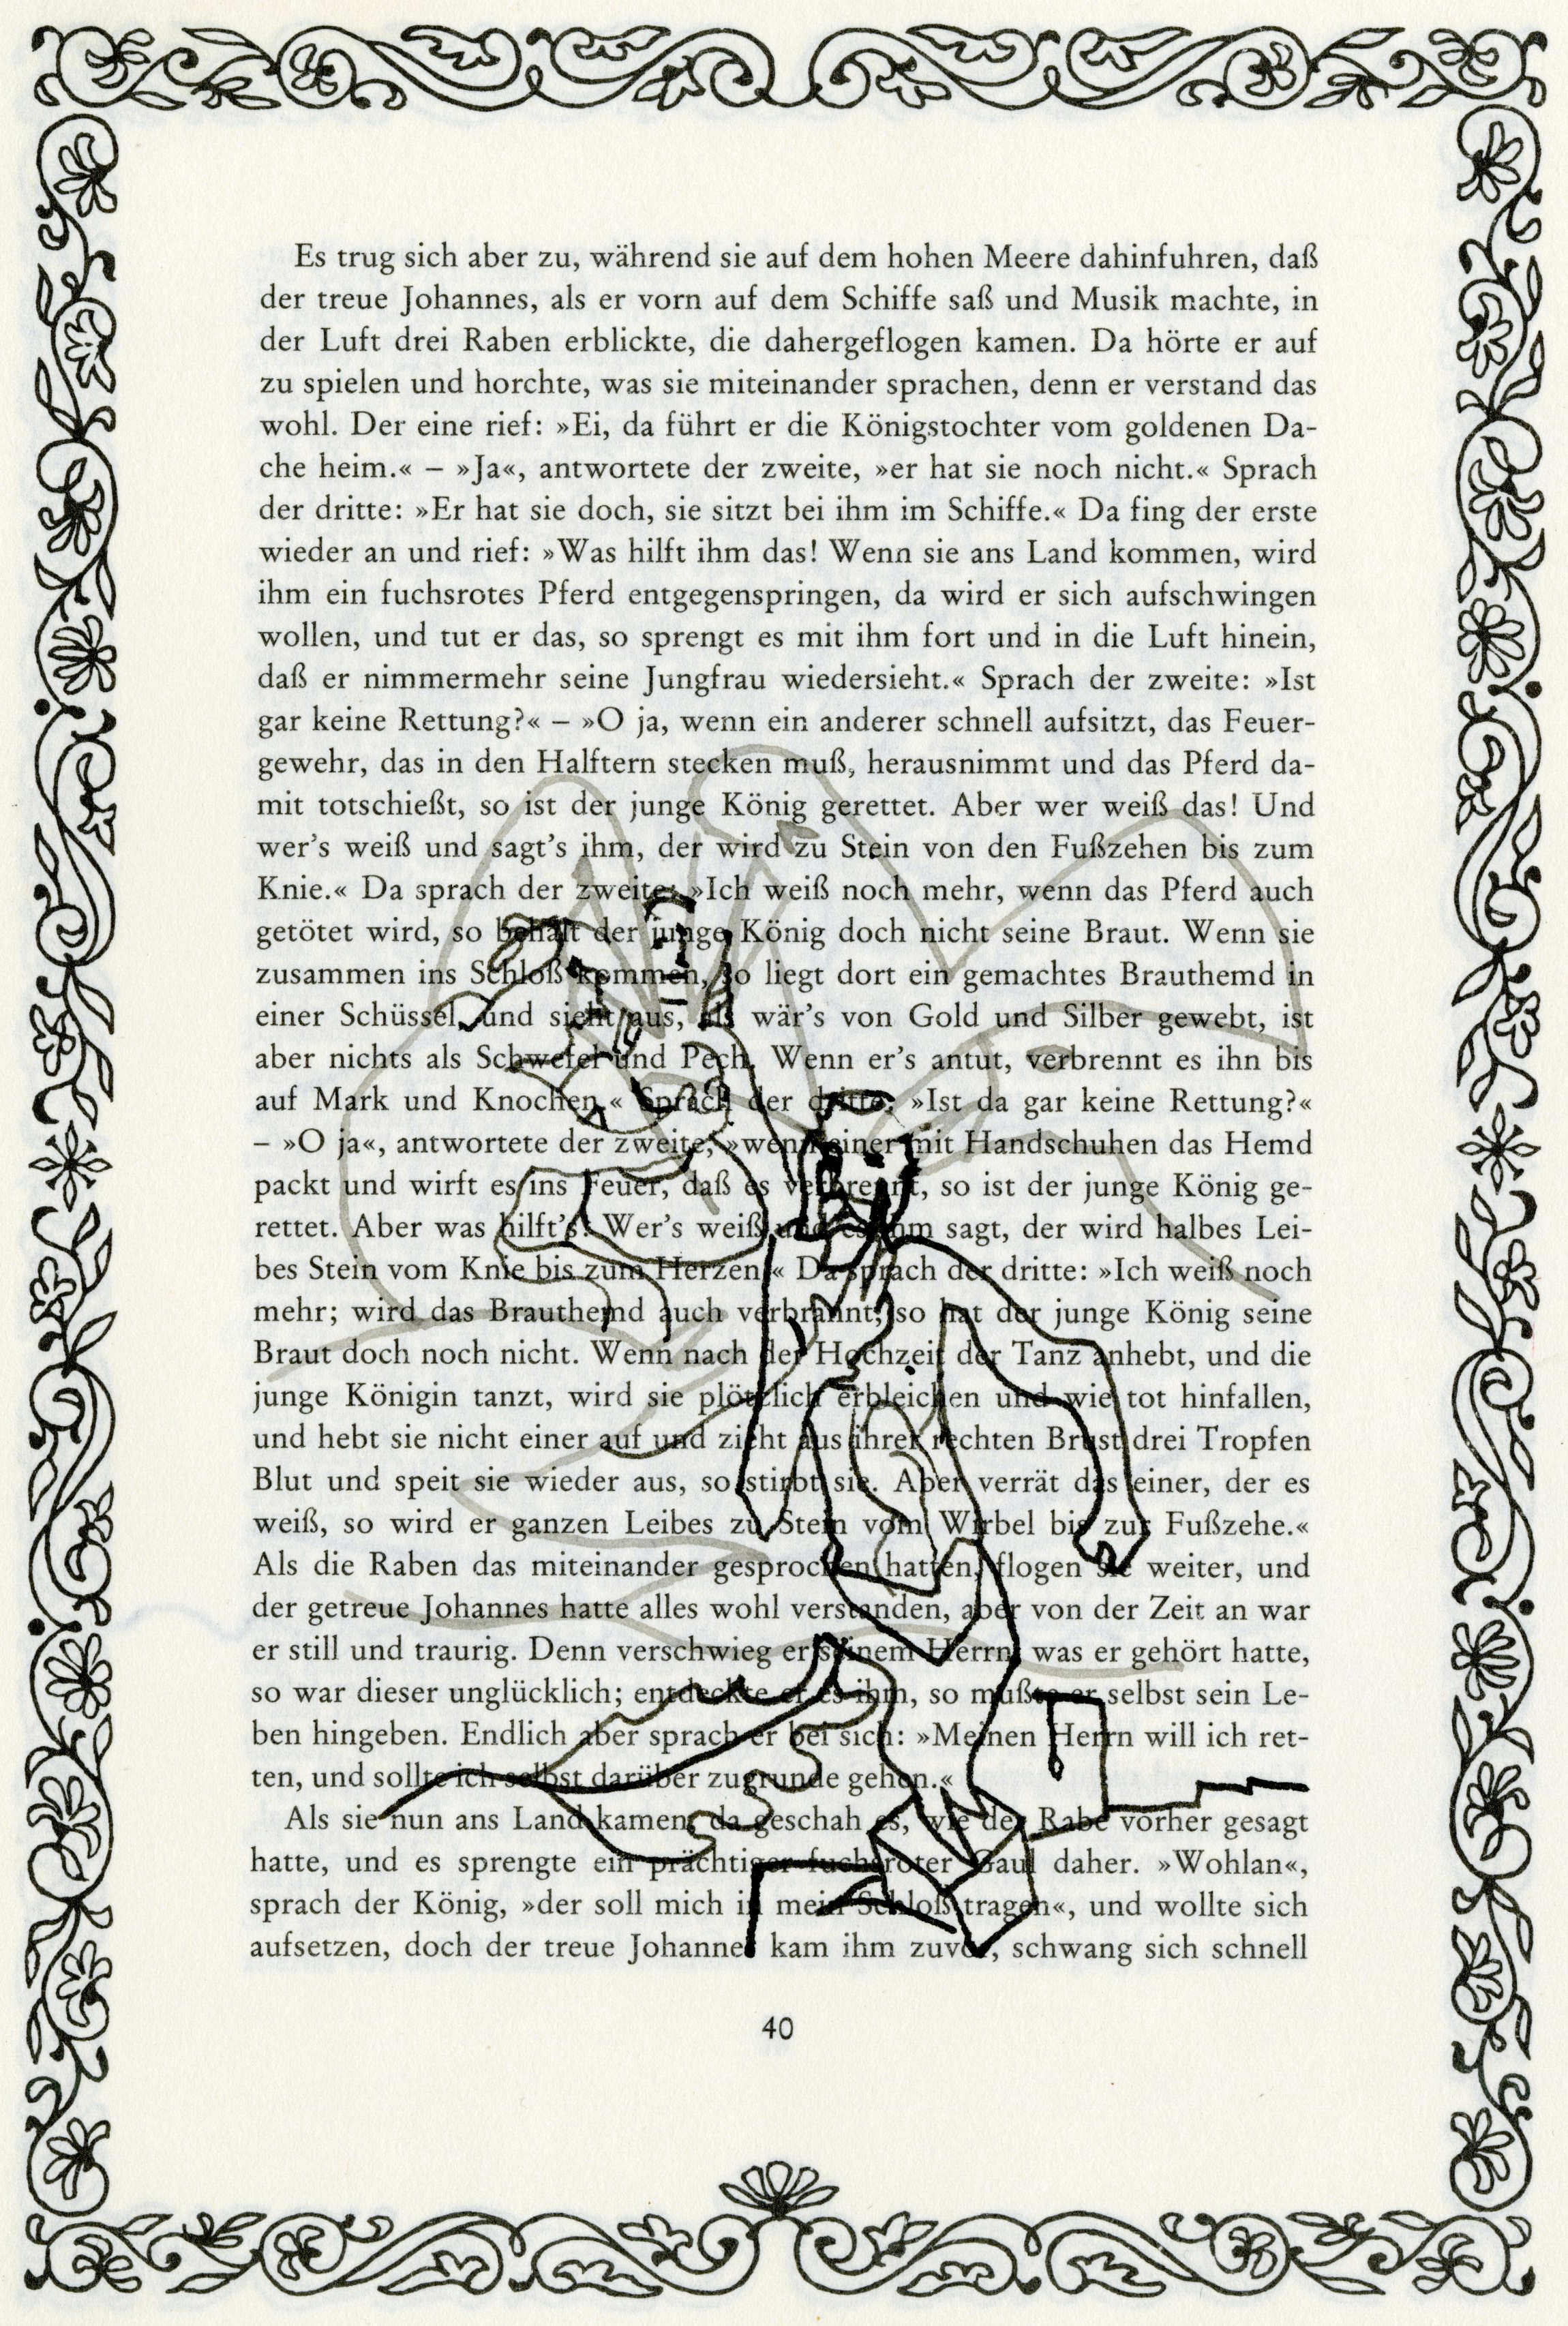 Es trug sich aber zu, während sie auf dem hohen Meere dahinfuhren, daß
der treue Johannes, als er vorn auf dem Schiffe saß und Musik machte, in
der Luft drei Raben erblickte, die dahergeflogen kamen. Da hörte er auf
zu spielen und horchte, was sie miteinander sprachen, denn er verstand das
wohl. Der eine rief: »Ei, da führt er die Königstochter vom goldenen Da-
che heim.« – »Ja«, antwortete der zweite, »er hat sie noch nicht.« Sprach
der dritte: »Er hat sie doch, sie sitzt bei ihm im Schiffe.« Da fing der erste
wieder an und rief: »Was hilft ihm das! Wenn sie ans Land kommen, wird
ihm ein fuchsrotes Pferd entgegenspringen, da wird er sich aufschwingen
wollen, und tut er das, so sprengt es mit ihm fort und in die Luft hinein,
daß er nimmermehr seine Jungfrau wiedersieht.« Sprach der zweite: »Ist
gar keine Rettung?« – »O ja, wenn ein anderer schnell aufsitzt, das Feuer-
gewehr, das in den Halftern stecken muß, herausnimmt und das Pferd da-
mit totschießt, so ist der junge König gerettet. Aber wer weiß das! Und
wer's weiß und sagt's ihm, der wird zu Stein von den Fußzehen bis zum
Knie.« Da sprach der zweite: »Ich weiß noch mehr, wenn das Pferd auch
getötet wird, so behält der junge König doch nicht seine Braut. Wenn sie
zusammen ins Schloß kommen, so liegt dort ein gemachtes Brauthemd in
einer Schüssel, und sieht aus, als wär's von Gold und Silber gewebt, ist
aber nichts als Schwefel und Pech. Wenn er's antut, verbrennt es ihn bis
auf Mark und Knochen.« Sprach der dritte: »Ist da gar keine Rettung?«
– »O ja«, antwortete der zweite, »wenn einer mit Handschuhen das Hemd
packt und wirft es ins Feuer, daß es verbrennt, so ist der junge König ge-
rettet. Aber was hilft's! Wer's weiß und es ihm sagt, der wird halbes Lei-
bes Stein vom Knie bis zum Herzen.« Da sprach der dritte: »Ich weiß noch
mehr; wird das Brauthemd auch verbrannt, so hat der junge König seine
Braut doch noch nicht. Wenn nach der Hochzeit der Tanz anhebt, und die
junge Königin tanzt, wird sie plötzlich erbleichen und wie tot hinfallen,
und hebt sie nicht einer auf und zieht aus ihrer rechten Brust drei Tropfen
Blut und speit sie wieder aus, so stirbt sie. Aber verrät das einer, der es
weiß, so wird er ganzen Leibes zu Stein vom Wirbel bis zur Fußzehe.«
Als die Raben das miteinander gesprochen hatten, flogen sie weiter, und
der getreue Johannes hatte alles wohl verstanden, aber von der Zeit an war
er still und traurig. Denn verschwieg er seinem Herrn, was er gehört hatte,
so war dieser unglücklich; entdeckte er es ihm, so mußte er selbst sein Le-
ben hingeben. Endlich aber sprach er bei sich: »Meinen Herrn will ich ret-
ten, und sollte ich selbst darüber zugrunde gehen.«
Als sie nun ans Land kamen, da geschah es, wie der Rabe vorher gesagt
hatte, und es sprengte ein prächtiger fuchsroter Gaul daher. »Wohlan«,
sprach der König, »der soll mich in mein Schloß tragen«, und wollte sich
aufsetzen, doch der treue Johannes kam ihm zuvor, schwang sich schnell
40